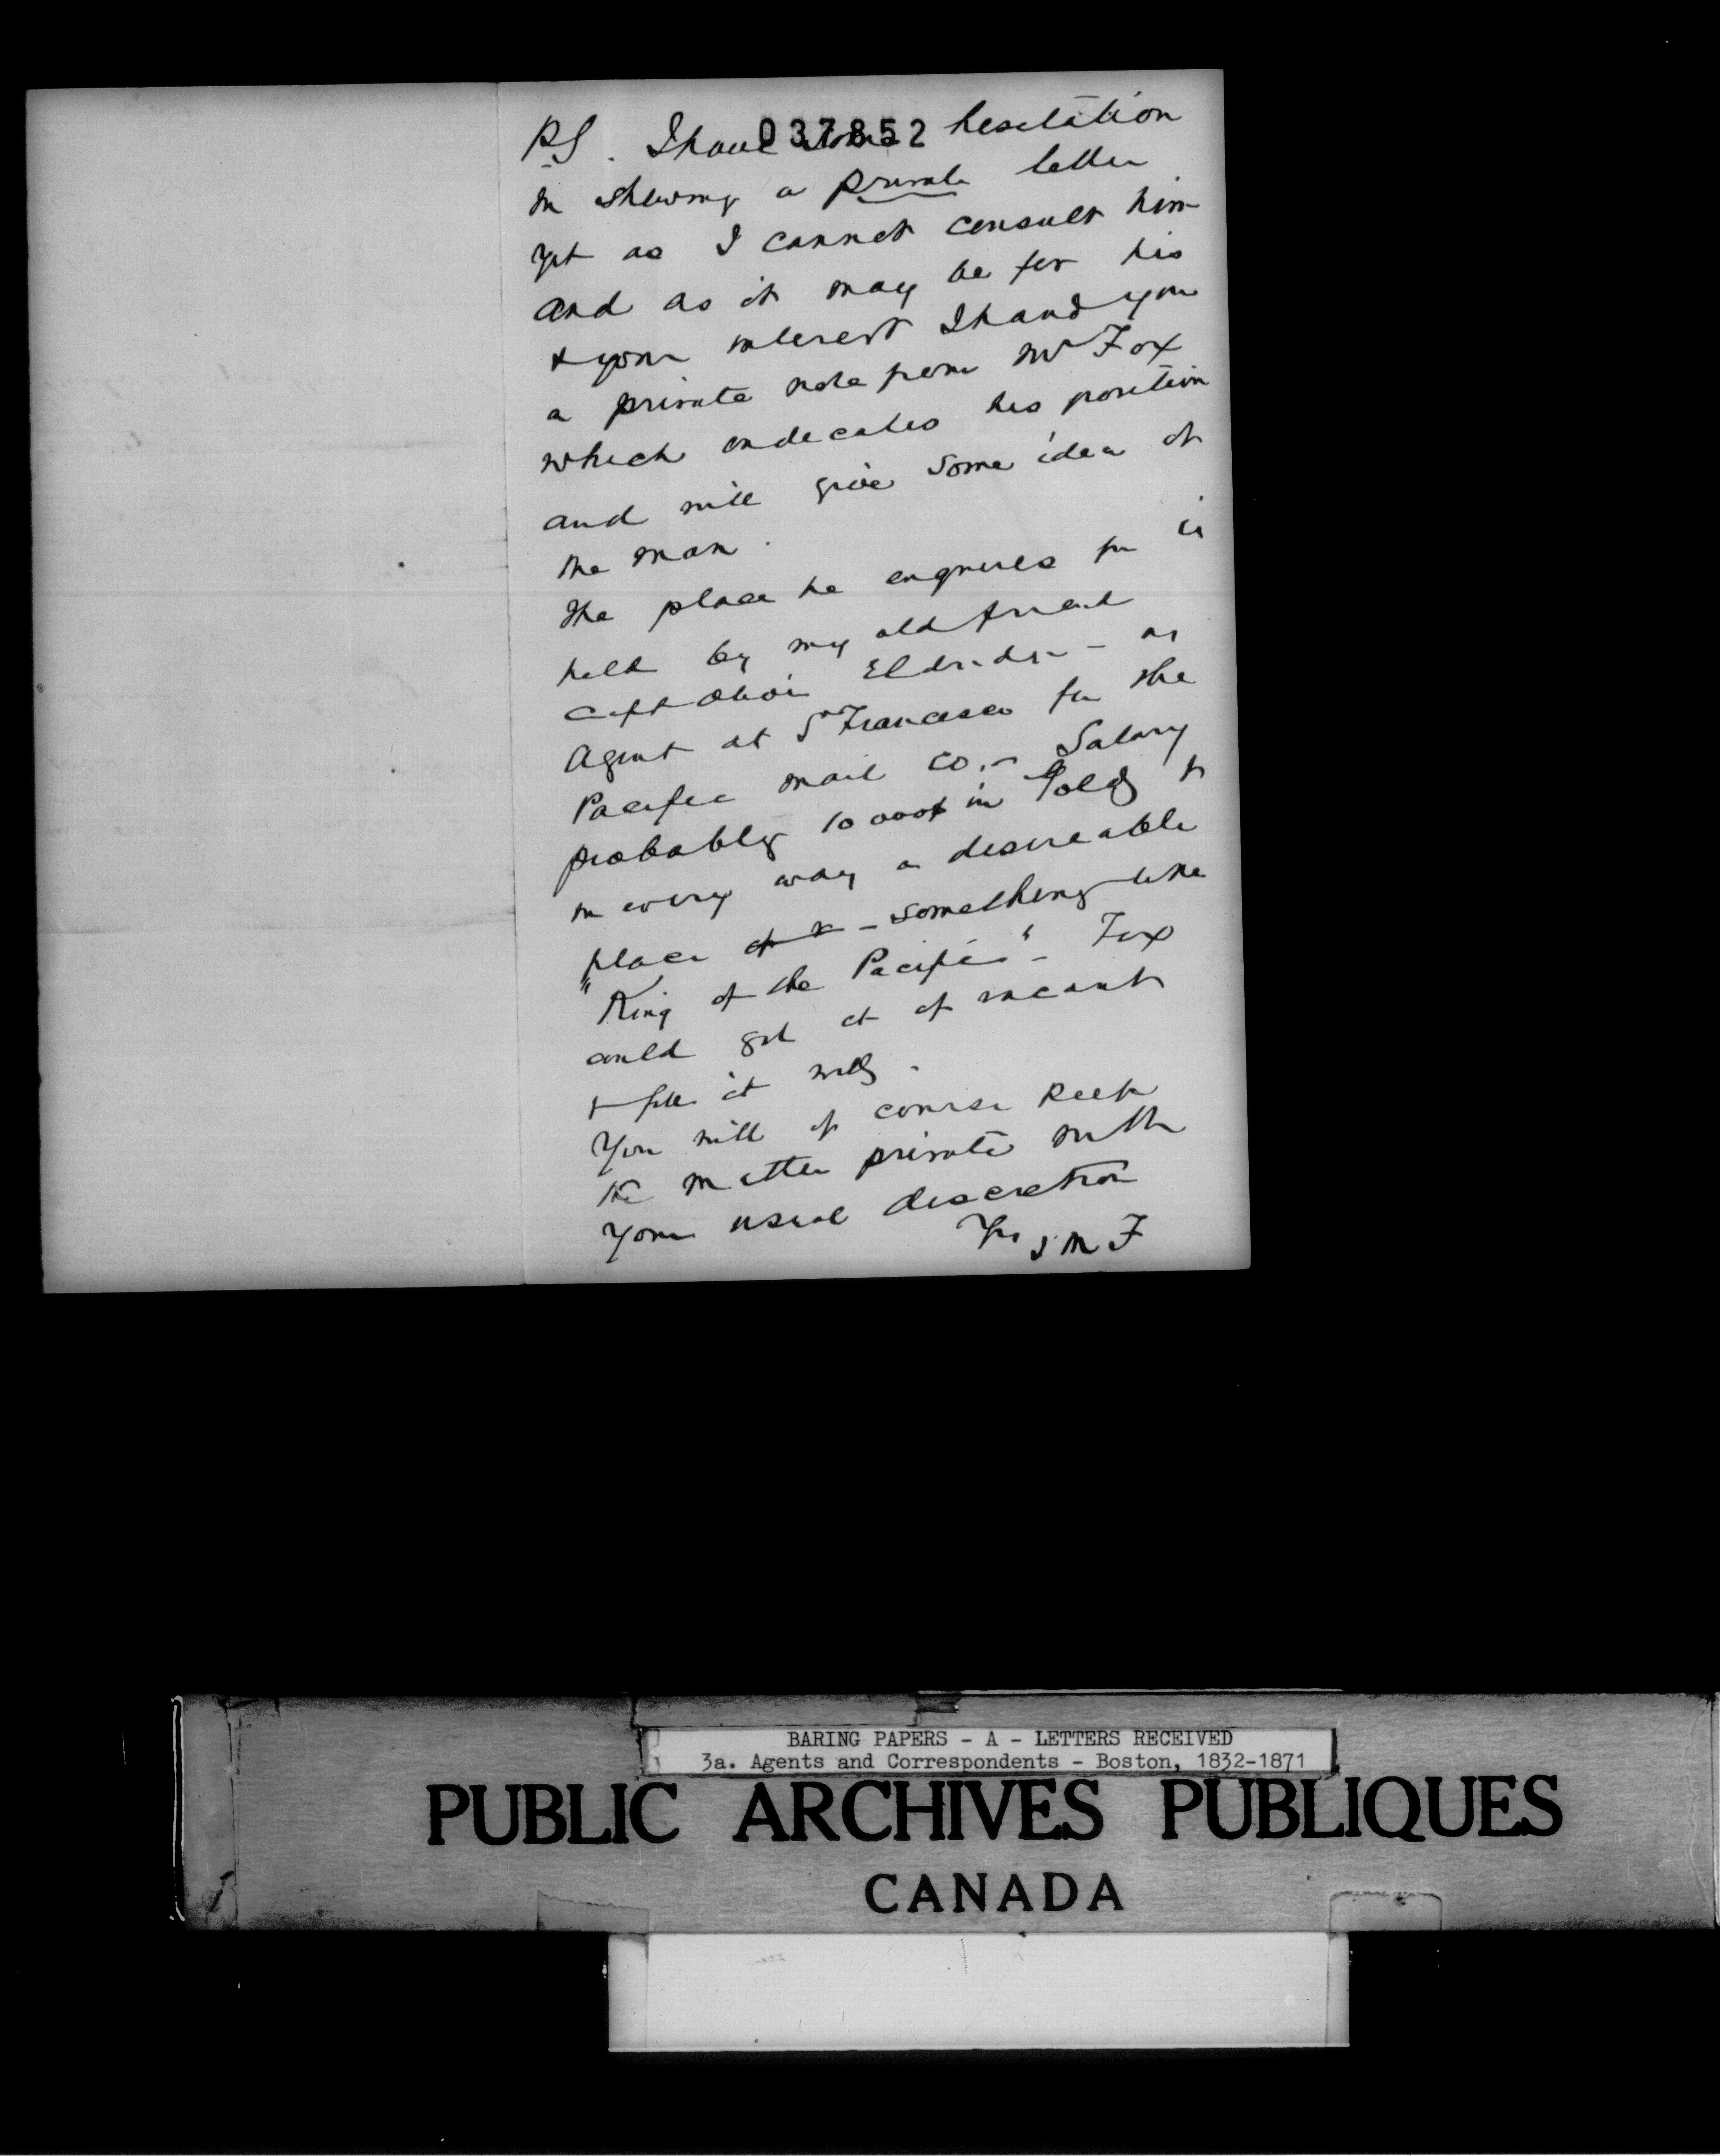 PS. I have some hesitation
037852
in shewing a private letter
yet as I cannot consult him
and as it may be for his
& your interest I hand you
a private note from Mr Fox
which indicates his position
and will give some idea of
the man.
The place he enquires for is
held by my old friend
Capt Eldridge - as
Agent at S Francisco for the
Pacific Mail Co. - Salary
probably 10 000$ in Gold &
in every way a desireable
place - something like
"King of the Pacific" - Fox
could get it if vacant
& fill it well.
You will of course keep
the matter private with
your usual discretion
Yrs J M F
BARING PAPERS - A - LETTERS RECEIVED
3a. Agents and Correspondents - Boston, 1832-1871
PUBLIC ARCHIVES PUBLIQUES
CANADA